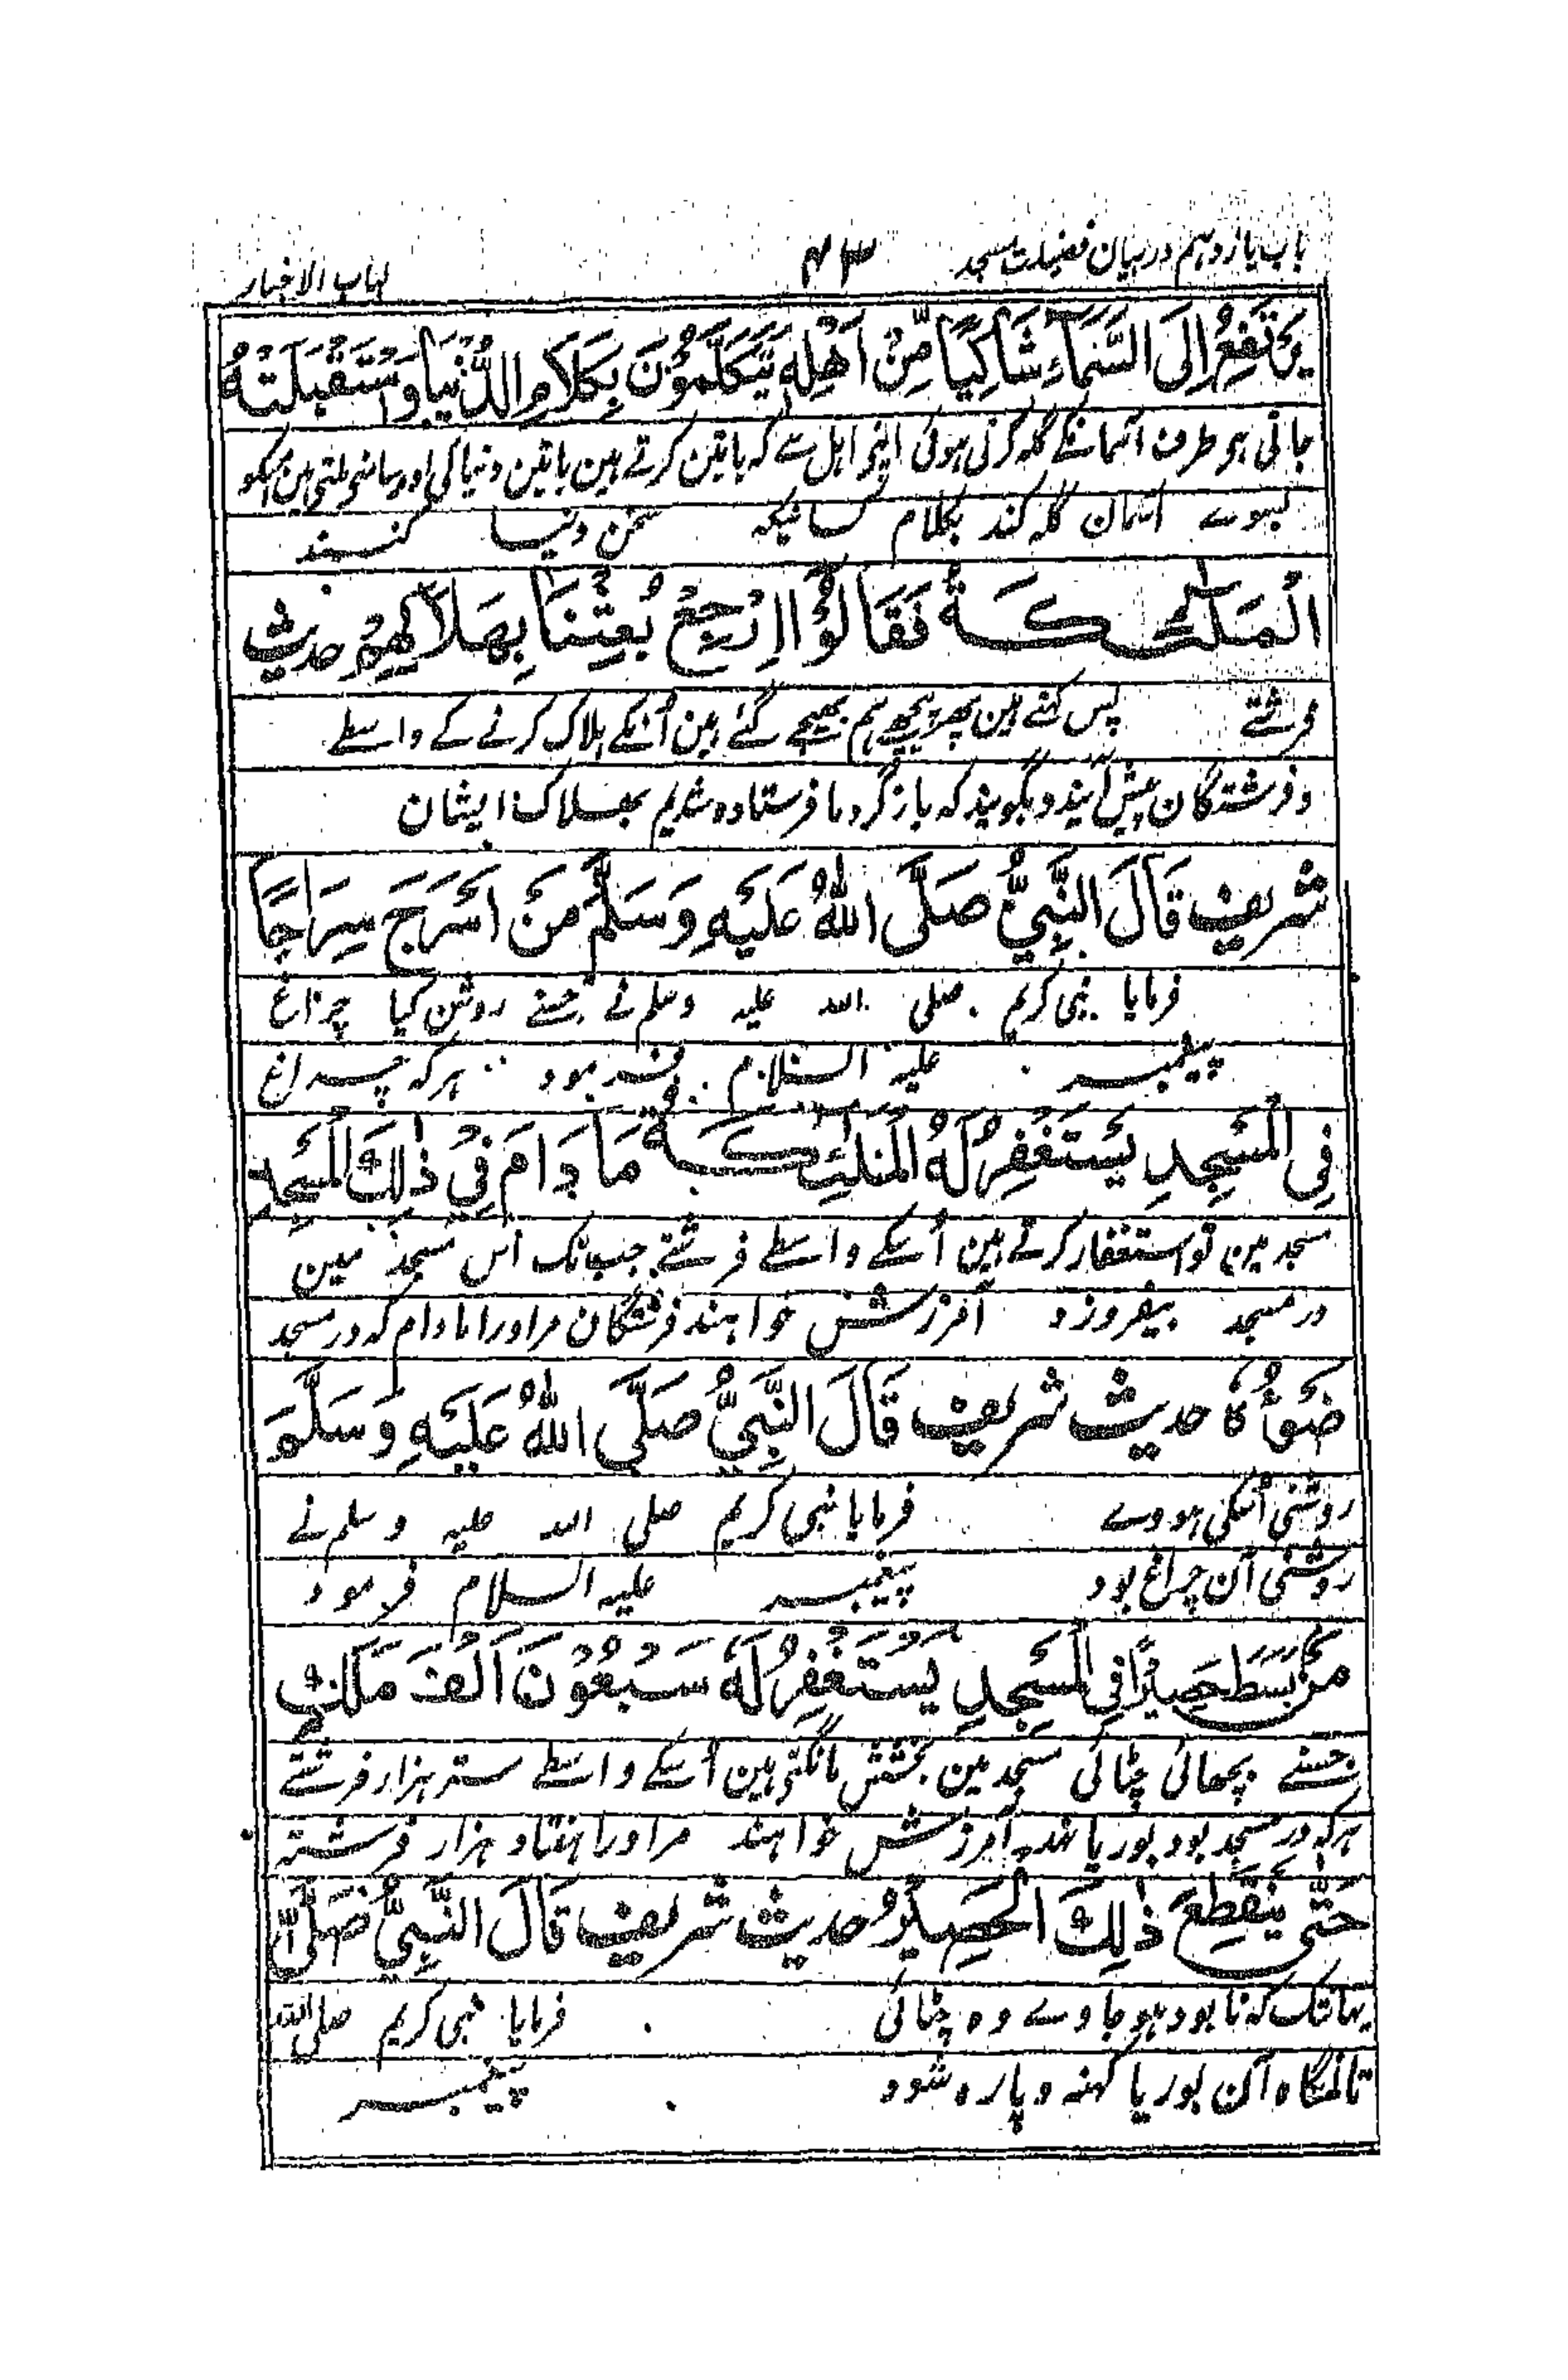 باب یازدهم در بیان فضیلت مسجد ۴۳ لباب الاخبار
يَرْتَفِعُ اِلَى السَّمَاۤءِ شَاكِيًا مِّنْ اَهْلِهٖ يَتَكَلَّمُوْنَ بِكَلَامِ الدُّنْيَا وَاسْتَقْبَلَتْهُ
جاتی ہو طرف آسمانکے گلہ کرتی ہوئی اپنو اہل سے کہ باتین کرتے ہین باتین دنیا کی اور سامنے ملتی ہین اسکو
بسوے آسمان گله کند بکلام کسانیکه سخن دنیا کنند
الْمَلٰٓئِكَةُ فَقَالُوْا اِرْجِعْ بُعِثْنَا بِهَلَاكِهِمْ حدیث
فرشتے پس کہتے ہین پھر پیچھے ہم بھیجے گئے ہین اُنکے ہلاک کرنے کے واسطے
و فرشتگان پیش آیند و بگویند که بازگرد ما فرستاده شدیم بهلاک ایشان
شریف قَالَ النَّبِيُّ صَلَّى اللّٰهُ عَلَيْهِ وَسَلَّمَ مَنْ اَسْرَجَ سِرَاجًا
فرمایا نبی کریم صلی اللہ علیہ وسلم نے جسنے روشن کیا چراغ
پیغمبر علیه السلام فرمود هر که چراغ
فِى الْمَسْجِدِ يَسْتَغْفِرُ لَهُ الْمَلٰٓئِكَةُ مَا دَامَ فِيْ ذٰلِكَ الْمَسْجِدِ
مسجد مین تو استغفار کرتے ہین اُسکے واسطے فرشتے جب تک اُس مسجد مین
در مسجد بیفروزد آمرزش خواهند فرشتگان مر او را مادام که در مسجد
ضَوْءُهٗ حدیث شریف قَالَ النَّبِيُّ صَلَّى اللّٰهُ عَلَيْهِ وَسَلَّمَ
روشنی اُسکی ہووے فرمایا نبی کریم صلی اللہ علیہ وسلم نے
روشنی آن چراغ بود پیغمبر علیه السلام فرمود
مَنْ بَسَطَ حَصِيْرًا فِى الْمَسْجِدِ يَسْتَغْفِرُ لَهٗ سَبْعُوْنَ اَلْفَ مَلَكٍ
جسنے بچھائی چٹائی مسجد مین بخشش مانگتے ہین اُسکے واسطے ستر ہزار فرشتے
هر که در مسجد بوریا آمرزش خواهند مر او را هفتاد هزار فرشته
حَتّٰى يَنْقَطِعَ ذٰلِكَ الْحَصِيْرُ حدیث شریف قَالَ النَّبِيُّ صَلَّى اللّٰهُ
یہانتک کہ نابود ہو جاوے وہ چٹائی فرمایا نبی کریم صلی اللہ
تا آنگاه آن بوریا کهنه و پاره شود پیغمبر